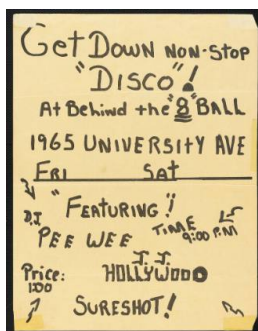 Get Down non-stop
"Disco"!
At Behind the "8" Ball
1965 University Ave
Fri Sat
"Featuring"!
D.J. Time
Pee Wee 9:00 P.M
J.J.
Price: Hollywood
1.00
Sureshot!